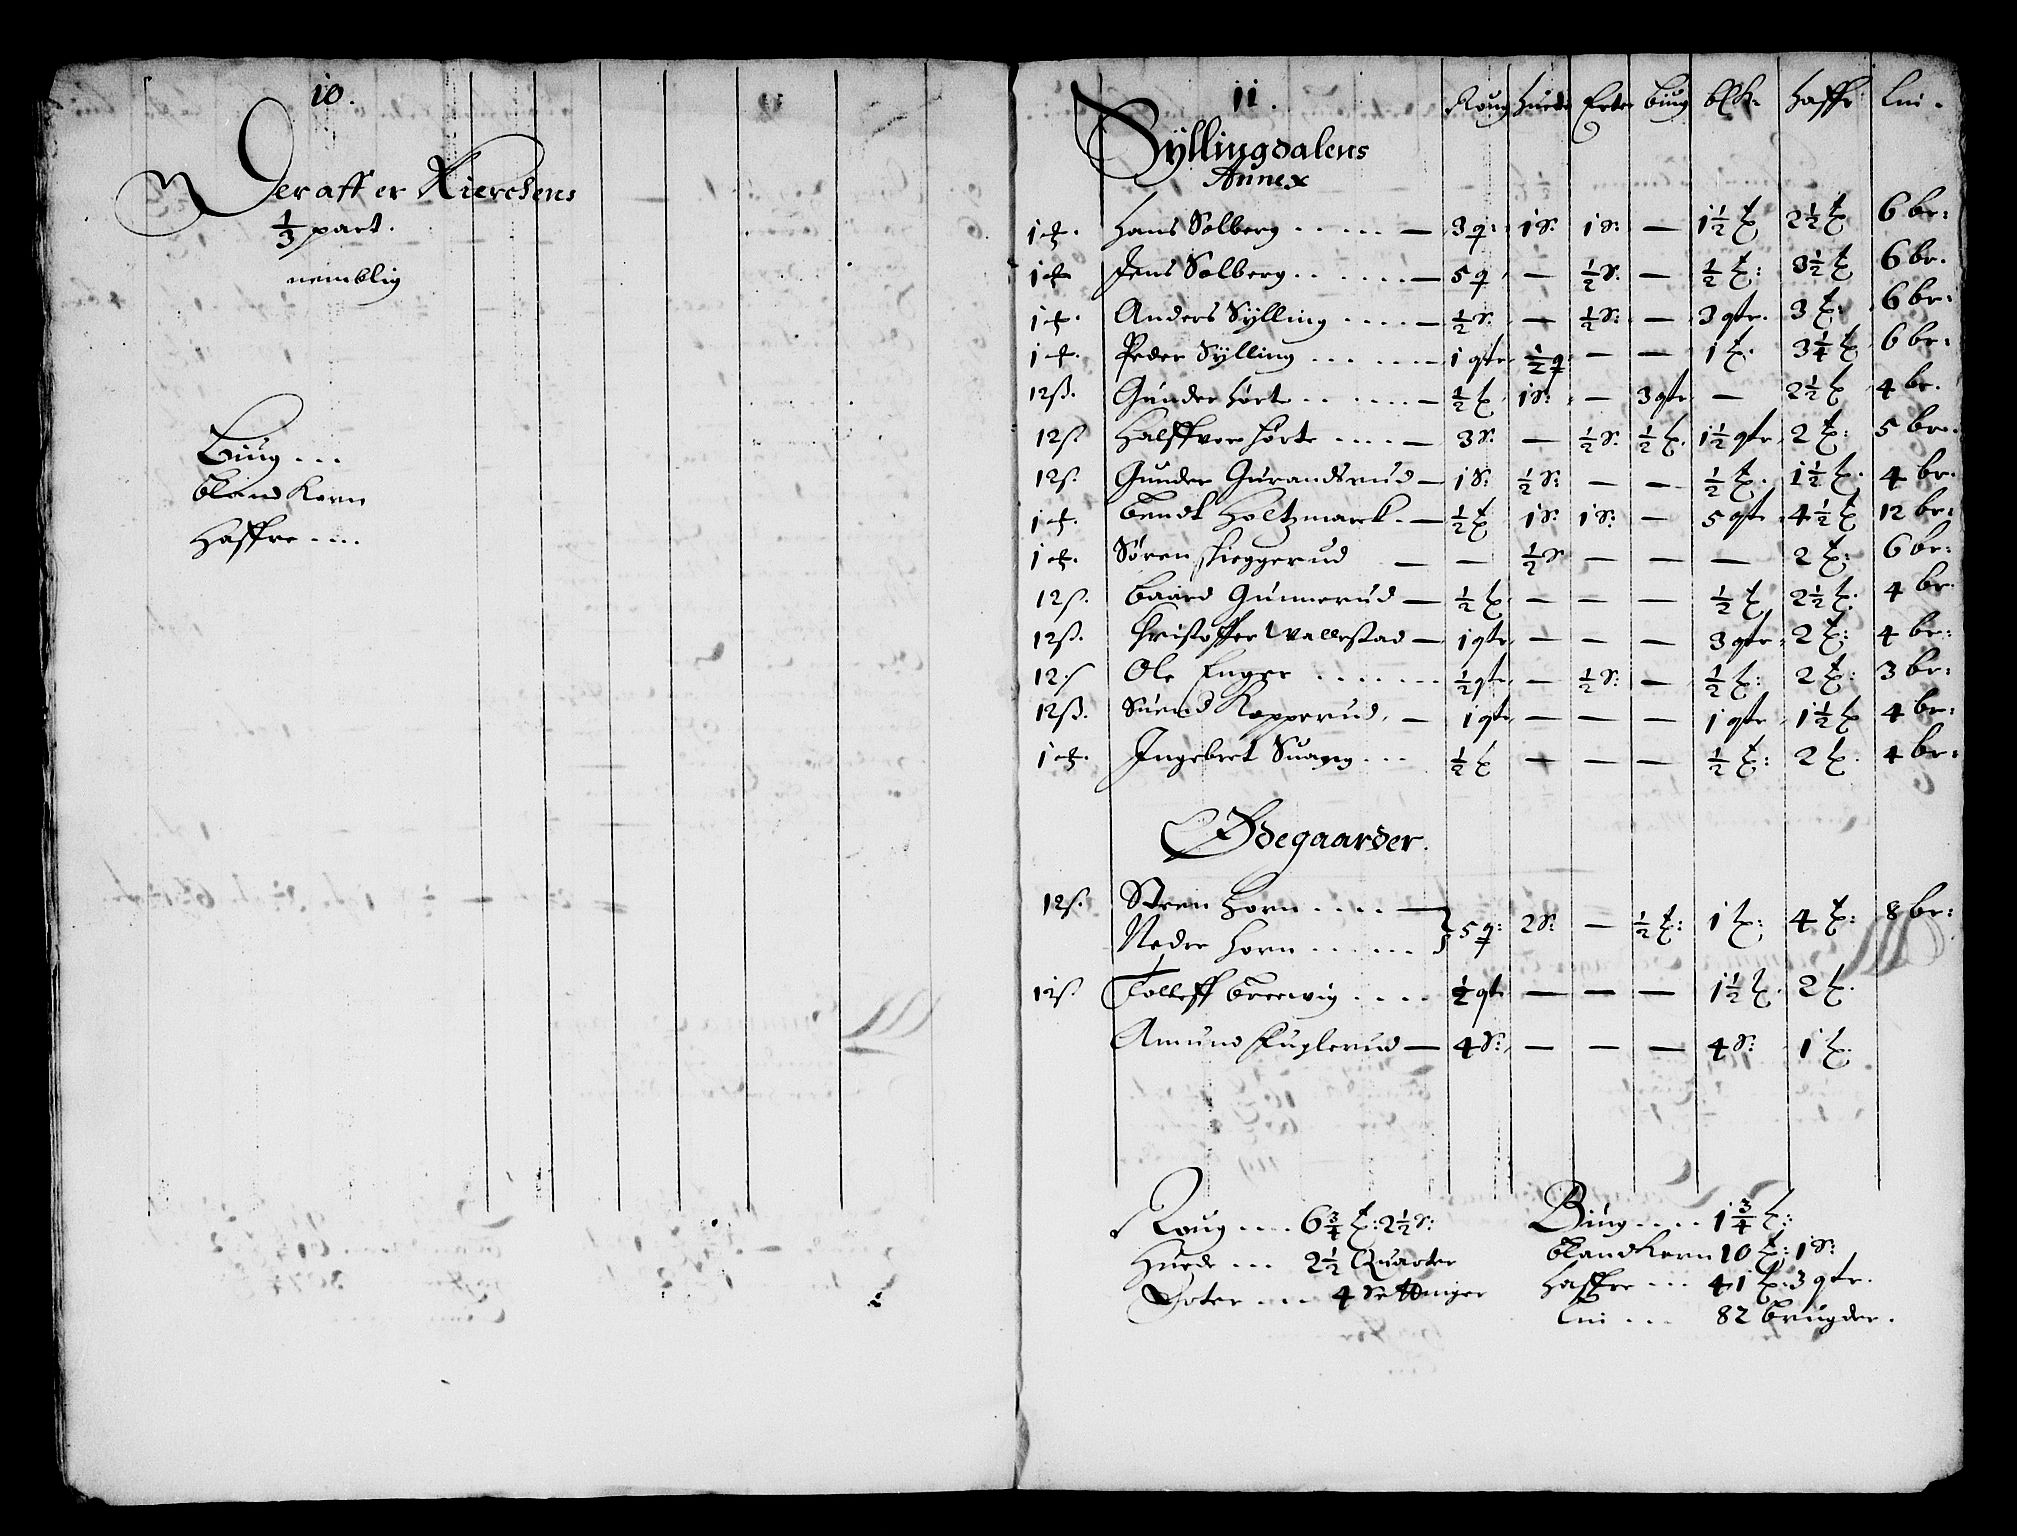 10.
Der aff er Kierckens
1/3 part.
nemblig
Biug ...
bland Korn
Haffre ....
11.
Roug Huede Erter biug blk. Haffr Lin.
Syllingdalens
Annex
1 Hans Solberg ..... — 3 q: 1 S: 1 S: — 1 1/2 t 2 1/2 t 6 br:
1 Jens Solberg ...... — 5 q — 1/2 S: — 1/2 t: 3 1/2 t 6 br.
1 Anders Sylling .... — 1/2 S: — 1/2 S: — 3 qtr. 3 t: 6 br:
1 Peder Sylling ...... — 1 qtr 1/2 q: — — 1 t. 3 1/4 t 6 br:
12 ß. Gunder Hørt ...... — 1/2 t 1 S: — 3 qtr — 2 1/2 t 4 br.
12 s. Halffvor Hørte .... — 3 S: — 1/2 S: 1/2 t. 1 1/2 qtr. 2 t: 5 br.
12 s. Gunder Gurandsrud — 1 S: 1/2 S: — — 1/2 t. 1 1/2 t. 4 br.
1 bendt Holtzmark. — 1/2 t 1 S: 1 S: — 5 qtr 4 1/2 t 12 br:
1 Søren skieggerud — — 1/2 S — — — 2 t: 6 br:
12 s. baard Gunnerud — 1/2 t — — — 1/2 t 2 1/2 t. 4 br.
12 ß. Christoffer Wallestad — 1 qtr — — — 3 qtr. 2 t: 4 br:
12 s Ole Enger ....... 1/2 qtr. — 1/2 S: — 1/2 t: 2 t: 3 br:
12 ß. Suend Kopperud. — 1 qtr — — — 1 qtr. 1 1/2 t 4 br:
1 Ingebret Suang ... 1/2 t — — — 1/2 t: 2 t. 4 br:
Ødegaarder.
12 s. Steen Horn .... —
Nedre Horn ...... } 5 q: 2 S: — 1/2 t: 1 t: 4 t: 8 br:
12 s. Tolleff breevig .... 1/2 qt — — — 1 1/2 t. 2 t.
Amund fuglerud — 4 S: — — — 4 S: 1 t.
Roug .... 6 3/4 t: 2 1/2 S:
Huede ... 2 1/2 Quarter
Erter .... 4 Settinger
Biug .... 1 3/4 t:
blandKorn 10 t: 1 S:
Haffre ... 41 t: 3 qtr.
Lin ... 82 brugder.